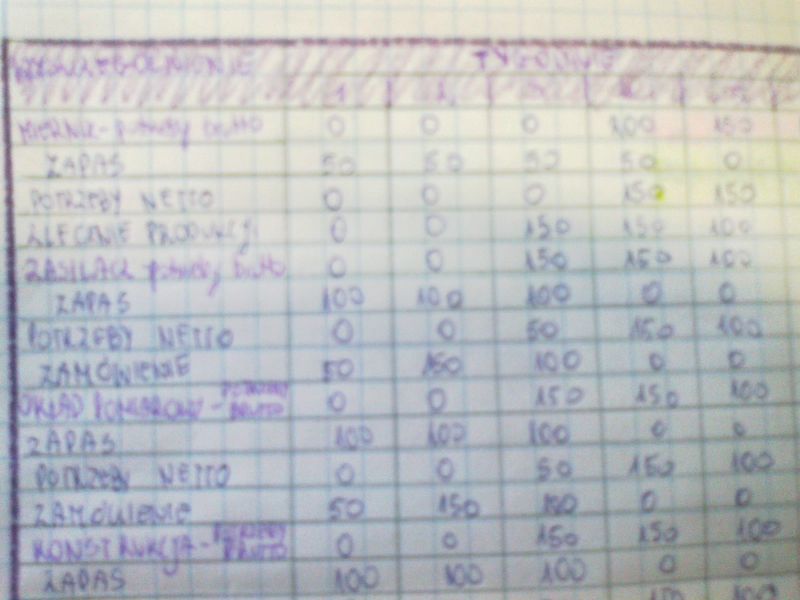 WYSZCZEGÓLNIENIE TYGODNIE
1 2 3 4 5
MIERNIK - potrzeby brutto 0 0 0 200 150
ZAPAS 50 50 50 50 0
POTRZEBY NETTO 0 0 0 150 150
ZLECENIE PRODUKCJI 0 0 150 150 100
ZASILACZ potrzeby brutto 0 0 150 150 100
ZAPAS 100 100 100 0 0
POTRZEBY NETTO 0 0 50 150 100
ZAMÓWIENIE 50 150 100 0 0
UKŁAD POMIAROWY - POTRZEBY BRUTTO 0 0 150 150 100
ZAPAS 100 100 100 0 0
POTRZEBY NETTO 0 0 50 150 100
ZAMÓWIENIE 50 150 100 0 0
KONSTRUKCJA - POTRZEBY BRUTTO 0 0 150 150 100
ZAPAS 100 100 100 0 0
150 100